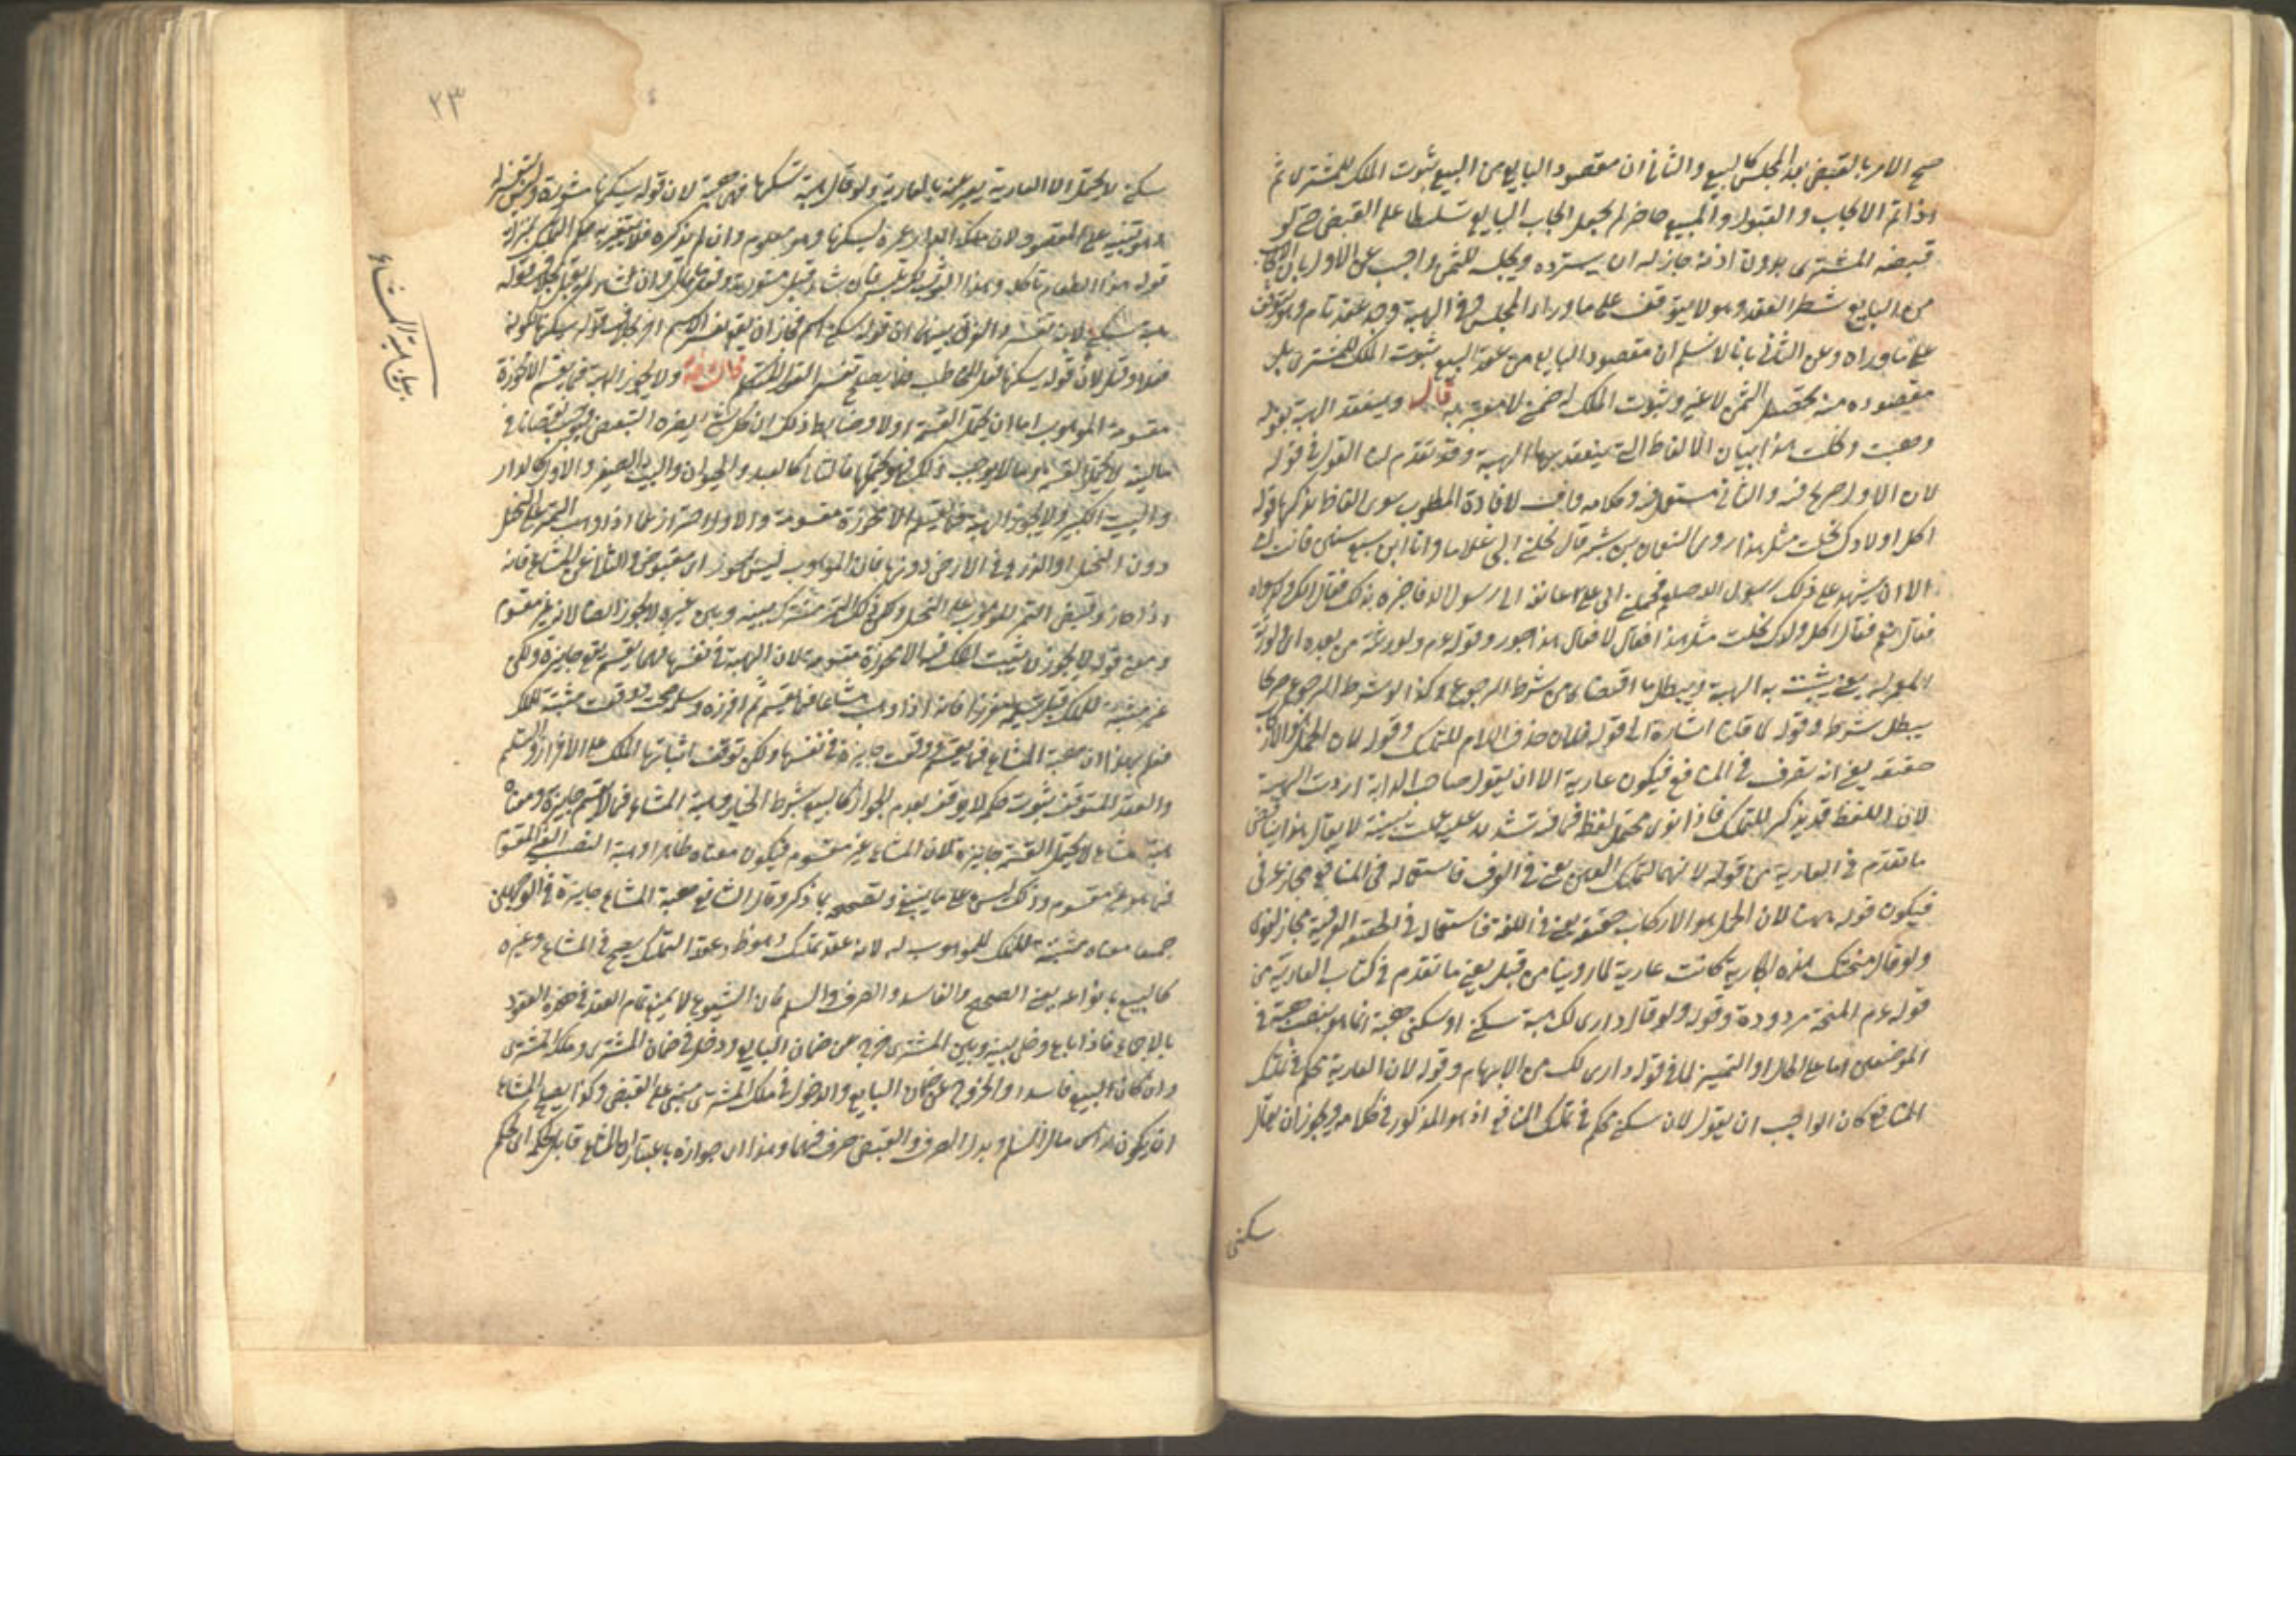 صح الامر بالقبض بعد المجلس كالبيع والثاني ان مقصود البايع من البيع ثبوت الملك للمشتري ثم
اذا تم الايجاب والقبول والمبيع حاضر لم يجعل ايجاب البايع تسليطا على القبض حتى لو
قبضه المشتري بدون اذنه جاز له ان يسترده ويحبسه للثمن واجيب عن الاول بان الايجاب
من البايع شطر العقد وهو لا يتوقف على ما وراء المجلس وفي الهبة وجد عقد تام وهو يتوقف
على ما وراه وعن الثاني بانا لا نسلم ان مقصود البايع من عقد البيع ثبوت الملك للمشتري بل
مقصوده منه تحصيل الثمن لا غير وثبوت الملك له ضمني لا معتبر به قال وينعقد الهبة بقوله
وهبت ونحلت هذا بيان الالفاظ التي ينعقد بها الهبة وقد تقدم لنا القول في قوله
لان الاول صريح فيه والثاني مستعمل فيه وكلامه واف لافادة المطلوب سوى الفاظ نذكرها قوله
اكل اولادك نحلت مثل هذا روى النعمان بن بشير قال نحلني ابي غلاما وانا ابن سبع سنين فابت امي
الا ان يشهد على ذلك رسول الله صلعم فحملني ابي على عاتقه الى رسول الله فاخبره بذلك فقال الك ولد سواه
فقال نعم فقال اكل ولدك نحلت مثل هذا فقال لا فقال هذا جور وقوله عم ولورثته من بعده اي لورثة
المعمر له يعني يثبت به الهبة ويبطل ما اقتضاه من شرط الرجوع وكذا لو شرط الرجوع صريحا
يبطل شرطه وقوله لما قلنا اشارة الى قوله فلان حرف اللام للتمليك وقوله لان الحمل هو الاركاب
حقيقة يعني انه تصرف في المنافع فيكون عارية الا ان يقول صاحب الدابة اردت الهبة
لان اللفظ قد يذكر للتمليك فاذا نوى محتمل لفظه فيما فيه تشديد عليه عملت نيته لا يقال هذا يناقض
ما تقدم في العارية من قوله لانهما لتمليك العين يعني في العرف فاستعماله في المنافع مجاز عرفي
فيكون قوله ههنا لان الحمل هو الاركاب حقيقة يعني في اللغة فاستعماله في الحقيقة العرفية مجاز لغوي
ولو قال منحتك هذه الجارية كانت عارية لما روينا من قبل يعني ما تقدم في كتاب العارية من
قوله عم المنحة مردودة وقوله ولو قال داري لك هبة سكنى او سكنى هبة انما هو بنصب هبة في
الموضعين اما على الحال او التمييز لما في قوله داري لك من الابهام وقوله لان العارية محكم في تمليك
المنافع كان الواجب ان يقول لان سكنى محكم في تمليك المنافع اذ هو المذكور في كلامه ويجوز ان يقال
سكنى
٢٣
سكنى لا يحتمل الا العارية يعبر عنه بالعارية ولو قال هبة تسكنها فهي هبة لان قوله تسكنها مشورة وليس بتفسير
وهو تنبيه على المقصود
قوله هذا الطعام تأكله وهذا الثوب تلبسه فان شاء قبل مشورته وفعل ما قال وان شاء لم يقبل بخلاف قوله
هبة سكنى لانه تفسير والفرق بينهما ان قوله سكنى اسم فجاز ان يقع تفسيرا لاسم اخر بخلاف قوله تسكنها لكونه
فعلا وقيل لان قوله تسكنها فعل المخاطب فلا يصلح تفسيرا لقول المتكلم قال رحمه ولا يجوز الهبة فيما يقسم الا محوزة
مقسومة الموهوب اما ان يحتمل القسمة او لا وضابط ذلك ان كل شي يضره التبعيض فيوجب نقصانا في
ماليته لا يحتمل القسمة وما لا يوجب ذلك فهو يحتملها فالثاني كالعبد والحيوان والبيت الصغير والاول كالدار
والبيت الكبير ولا يجوز الهبة فيما يقسم الا محوزة مقسومة والاول احتراز عما اذا وهب الثمر على النخل
دون النخل او الزرع في الارض دونها فان الموهوب ليس بمحوز اي مقبوض والثاني عن المشاع فانه
اذا حاز وقبض الثمر الموهوب على النخل ولكن ذلك الثمر مشترك بينه وبين غيره لا يجوز ايضا لانه غير مقسوم
ومعنى قوله لا يجوز لا يثبت الملك فيه الا محوزة مقسومة لان الهبة في نفسها فيما يقسم يقع جايزة ولكن
غير مثبتة للملك قبل تسليمه مفرزا فانه اذا وهب مشاعا فيما يقسم ثم افرزه وسلم صحت ووقعت مثبتة للملك
فعلم بهذا ان هبة المشاع فيما يقسم وقعت جايزة في نفسها ولكن توقف اثباتها الملك على الافراز والتسليم
والعقد المتوقف ثبوت حكمه لا يوصف بعدم الجواز كالبيع بشرط الخيار وهبة المشاع فيما لا يقسم جايزة ومعناه
هبة مشاع لا يحتمل القسمة جايزة لان المشاع غير مقسوم فيكون معناه ظاهرا وهبة النصيب الغير المقسوم
فيما هو غير مقسوم وذلك ليس على ما ينبغي وتصحيحه بما ذكر وقال الشافعي هبة المشاع جايزة في الوجهين
جميعا معناه مثبتة للملك للموهوب له لانه عقد تمليك وهو ظاهر وعقد التمليك يصح في المشاع وغيره
كالبيع بانواعه يعني الصحيح والفاسد والصرف والسلم فان الشيوع لا يمنع تمام العقد في هذه العقود
بالاجماع فاذا باع وخلى بينه وبين المشتري خرج عن ضمان البايع ودخل في ضمان المشتري وملكه المشتري
وان كان البيع فاسدا والخروج عن ضمان البايع والدخول في ملك المشتري مبني على القبض وكذا يصلح المشاع
ان يكون راس مال السلم وبدل الصرف والقبض شرط فيهما وهذا اي جوازه باعتبار ان المشاع قابل لحكمه اي حكم
مطلب هبة المشاع